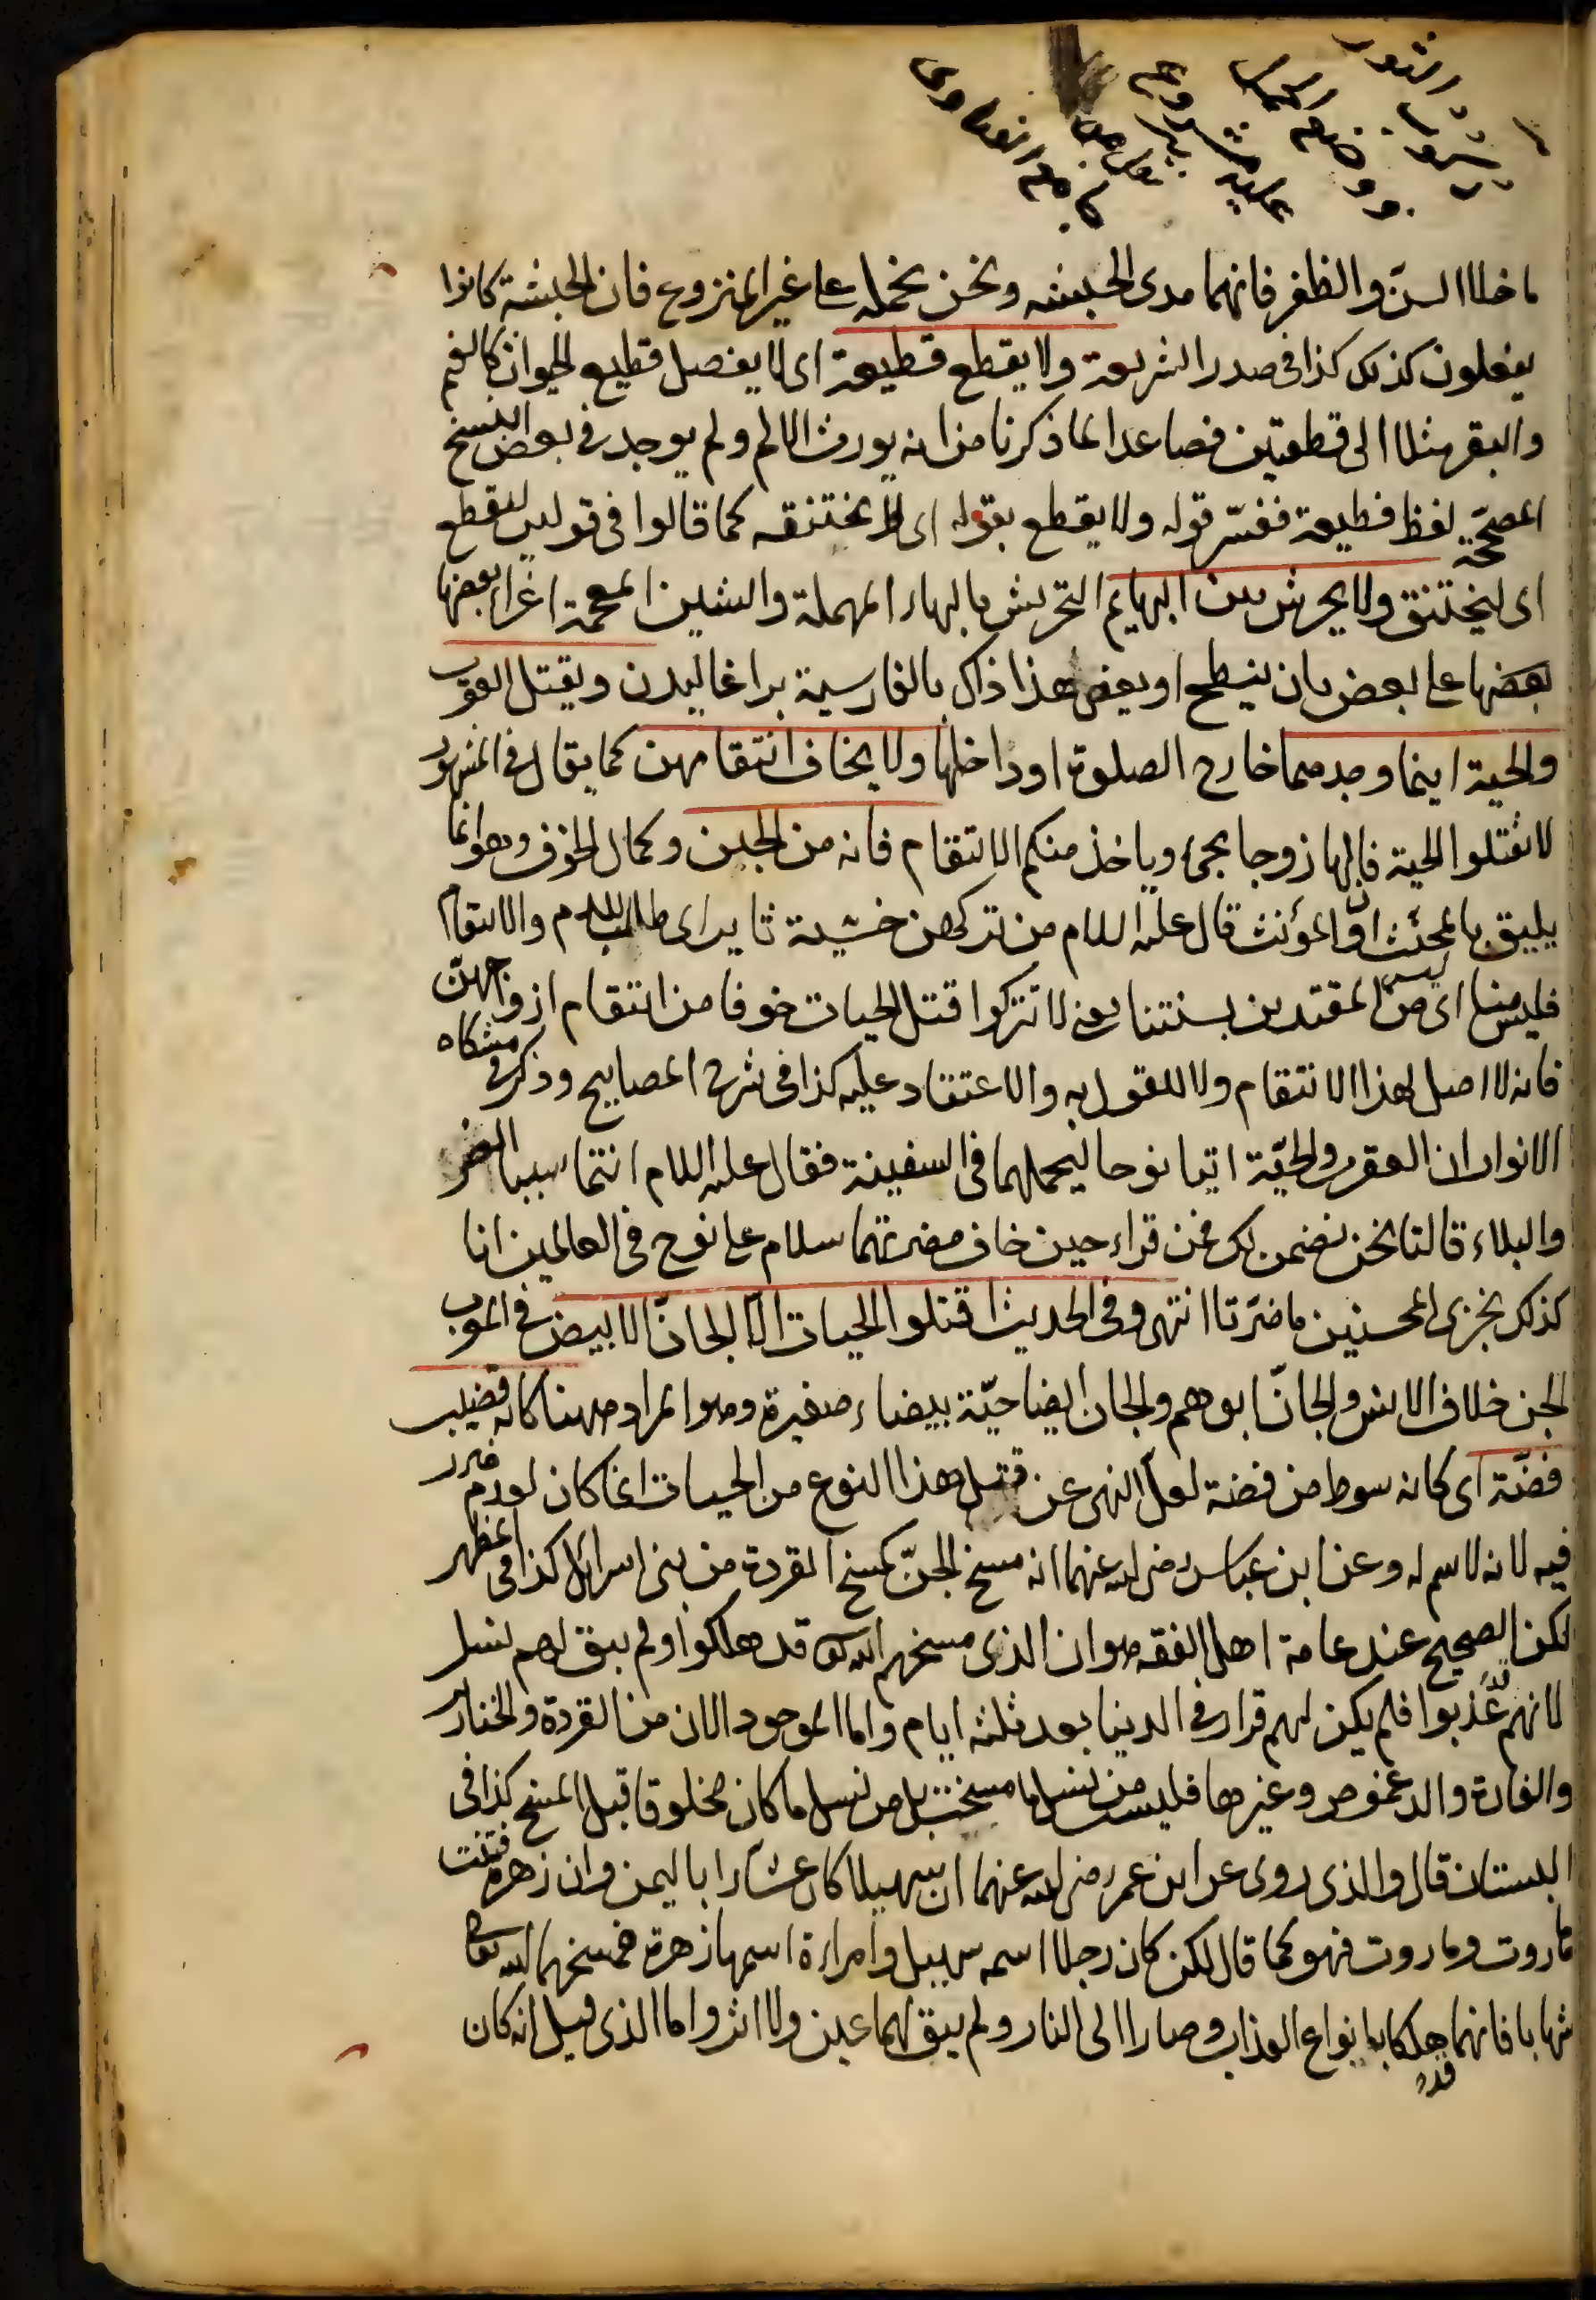 ما خلا السنّ والظفر فانهما مدى الحبشه ونحن نحمله على غير المنزوع فان الحبشة كانوا
يفعلون كذلك كذا فى صدر الشريعة ولا يقطع قطيعة اى لا يفصل قطيع الحيوان كالغنم
والبقر مثلا الى قطعتين فصاعدا لما ذكرنا من انه يورث الالم ولم يوجد فى بعض النسخ
المصحّحة لفظ قطيعة ففسّر قوله ولا يقطع بقوله اى لا يختنقه كما قالوا فى قوله ليقطع
اى ليختنق ولا يحرش بين البهايم التحريش بالهاء المهملة والشين المعجمة اغراء بعضها
بعضها على بعض بان ينطح او يعض هذا ذاك بالفارسية براغاليدن ويقتل العقرب
والحية اينما وجدهما خارج الصلوة او داخلها ولا يخاف انتقامهن كما يقال فى المشهور
لا تقتلوا الحية فان لها زوجا يجئ وياخذ منكم الانتقام فانه من الجبن وكمال الخوف وهو انما
يليق بالمخنّث او المؤنث قال عليه السلام من تركهن خشية ثاير اى طالب للدم والانتقام
فليس منا اى ليس من المقتدين بسنتنا يعنى لا تتركوا قتل الحيات خوفا من انتقام ازواجهنّ
فانه لا اصل لهذا الانتقام ولا للقول به والاعتقاد عليه كذا فى شرح المصابيح وذكر فى مشكاه
الانوار ان العقرب والحيّة اتيا نوحا ليحملهما فى السفينة فقال عليه السلام انتما سببا الضر
والبلاء قالتا نحن نضمن لك فمن قراء حين خاف مضرتهما سلام على نوح فى العالمين انا
كذلك نجزى المحسنين ما ضرّتا انتهى وفى الحديث اقتلوا الحيات الا الجانّ الابيض فى المغرب
الجن خلاف الانس والجانّ ابوهم والجان ايضا حيّة بيضاء صغيرة وهو المراد ههنا كانه قضيب
فضّة اى كانه سوط من فضة لعلّ النهى عن قتل هذا النوع من الحيات انما كان لعدم ضرر
فيه لانه لا سم له وعن ابن عباس رضى الله عنهما انه مسخ الجنّ كمسخ القردة من بنى اسرائل كذا فى المظهر
لكن الصحيح عند عامة اهل الفقه هو ان الذى مسخهم الله تعالى قد هلكوا ولم يبق لهم نسل
لانهم قد عُذّبوا فلم يكن لهم قرار فى الدنيا بعد ثلثة ايام واما الموجود الان من القردة والخنازير
والفارة والدعموص وغيرها فليس من نسل ما مسخت بل من نسل ما كان مخلوقا قبل المسخ كذا فى
البستان قال والذى روى عن ابن عمر رضى الله عنهما ان سهيلا كان عشّارا باليمن وان زهرة فتنت
هاروت وماروت فهو كما قال لكن كان رجلا اسمه سهيل وامراءة اسمها زهرة فمسخهما الله تعالى
شهابا فانهما قد هلكا بانواع العذاب وصارا الى النار ولم يبق لهما عين ولا اثر واما الذى قيل انه كان